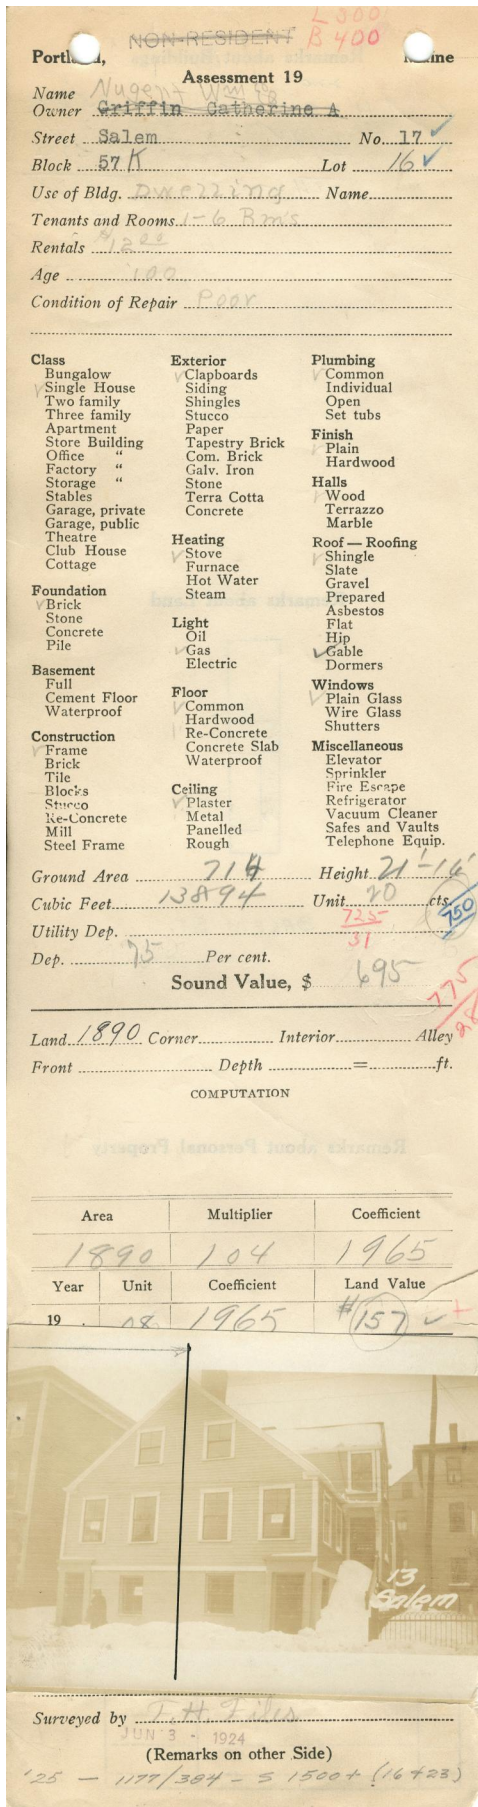 L 300
NON-RESIDENT B 400
Portland, Maine
Assessment 19
Name Nugent Wm
Owner Griffin Catherine A
Street Salem No. 17 ✓
Block 57 K Lot 16 ✓
Use of Bldg. Dwelling Name
Tenants and Rooms 1-6 Rms
Rentals $12 00
Age 100
Condition of Repair Poor
Class
Bungalow
✓ Single House
Two family
Three family
Apartment
Store Building
Office "
Factory "
Storage "
Stables
Garage, private
Garage, public
Theatre
Club House
Cottage
Foundation
✓ Brick
Stone
Concrete
Pile
Basement
Full
Cement Floor
Waterproof
Construction
✓ Frame
Brick
Tile
Blocks
Stucco
Re-Concrete
Mill
Steel Frame
Exterior
✓ Clapboards
Siding
Shingles
Stucco
Paper
Tapestry Brick
Com. Brick
Galv. Iron
Stone
Terra Cotta
Concrete
Heating
✓ Stove
Furnace
Hot Water
Steam
Light
Oil
✓ Gas
Electric
Floor
✓ Common
Hardwood
Re-Concrete
Concrete Slab
Waterproof
Ceiling
✓ Plaster
Metal
Panelled
Rough
Plumbing
✓ Common
Individual
Open
Set tubs
Finish
✓ Plain
Hardwood
Halls
✓ Wood
Terrazzo
Marble
Roof — Roofing
✓ Shingle
Slate
Gravel
Prepared
Asbestos
Flat
Hip
✓ Gable
Dormers
Windows
✓ Plain Glass
Wire Glass
Shutters
Miscellaneous
Elevator
Sprinkler
Fire Escape
Refrigerator
Vacuum Cleaner
Safes and Vaults
Telephone Equip.
Ground Area 714 Height 21'-16'
Cubic Feet 13894 Unit 20 cts. 750
725
31
Utility Dep.
Dep. 75 Per cent.
Sound Value, $ 695
775
28
Land 1890 Corner Interior Alley
Front Depth = ft.
COMPUTATION
Area Multiplier Coefficient
1890 104 1965
Year Unit Coefficient Land Value
19 . 08 1965 $157 ✓ +
13
Salem
Surveyed by F. H. Files
JUN 3 - 1924
(Remarks on other Side)
'25 - 1177/384 - S 1500+ (16+23)